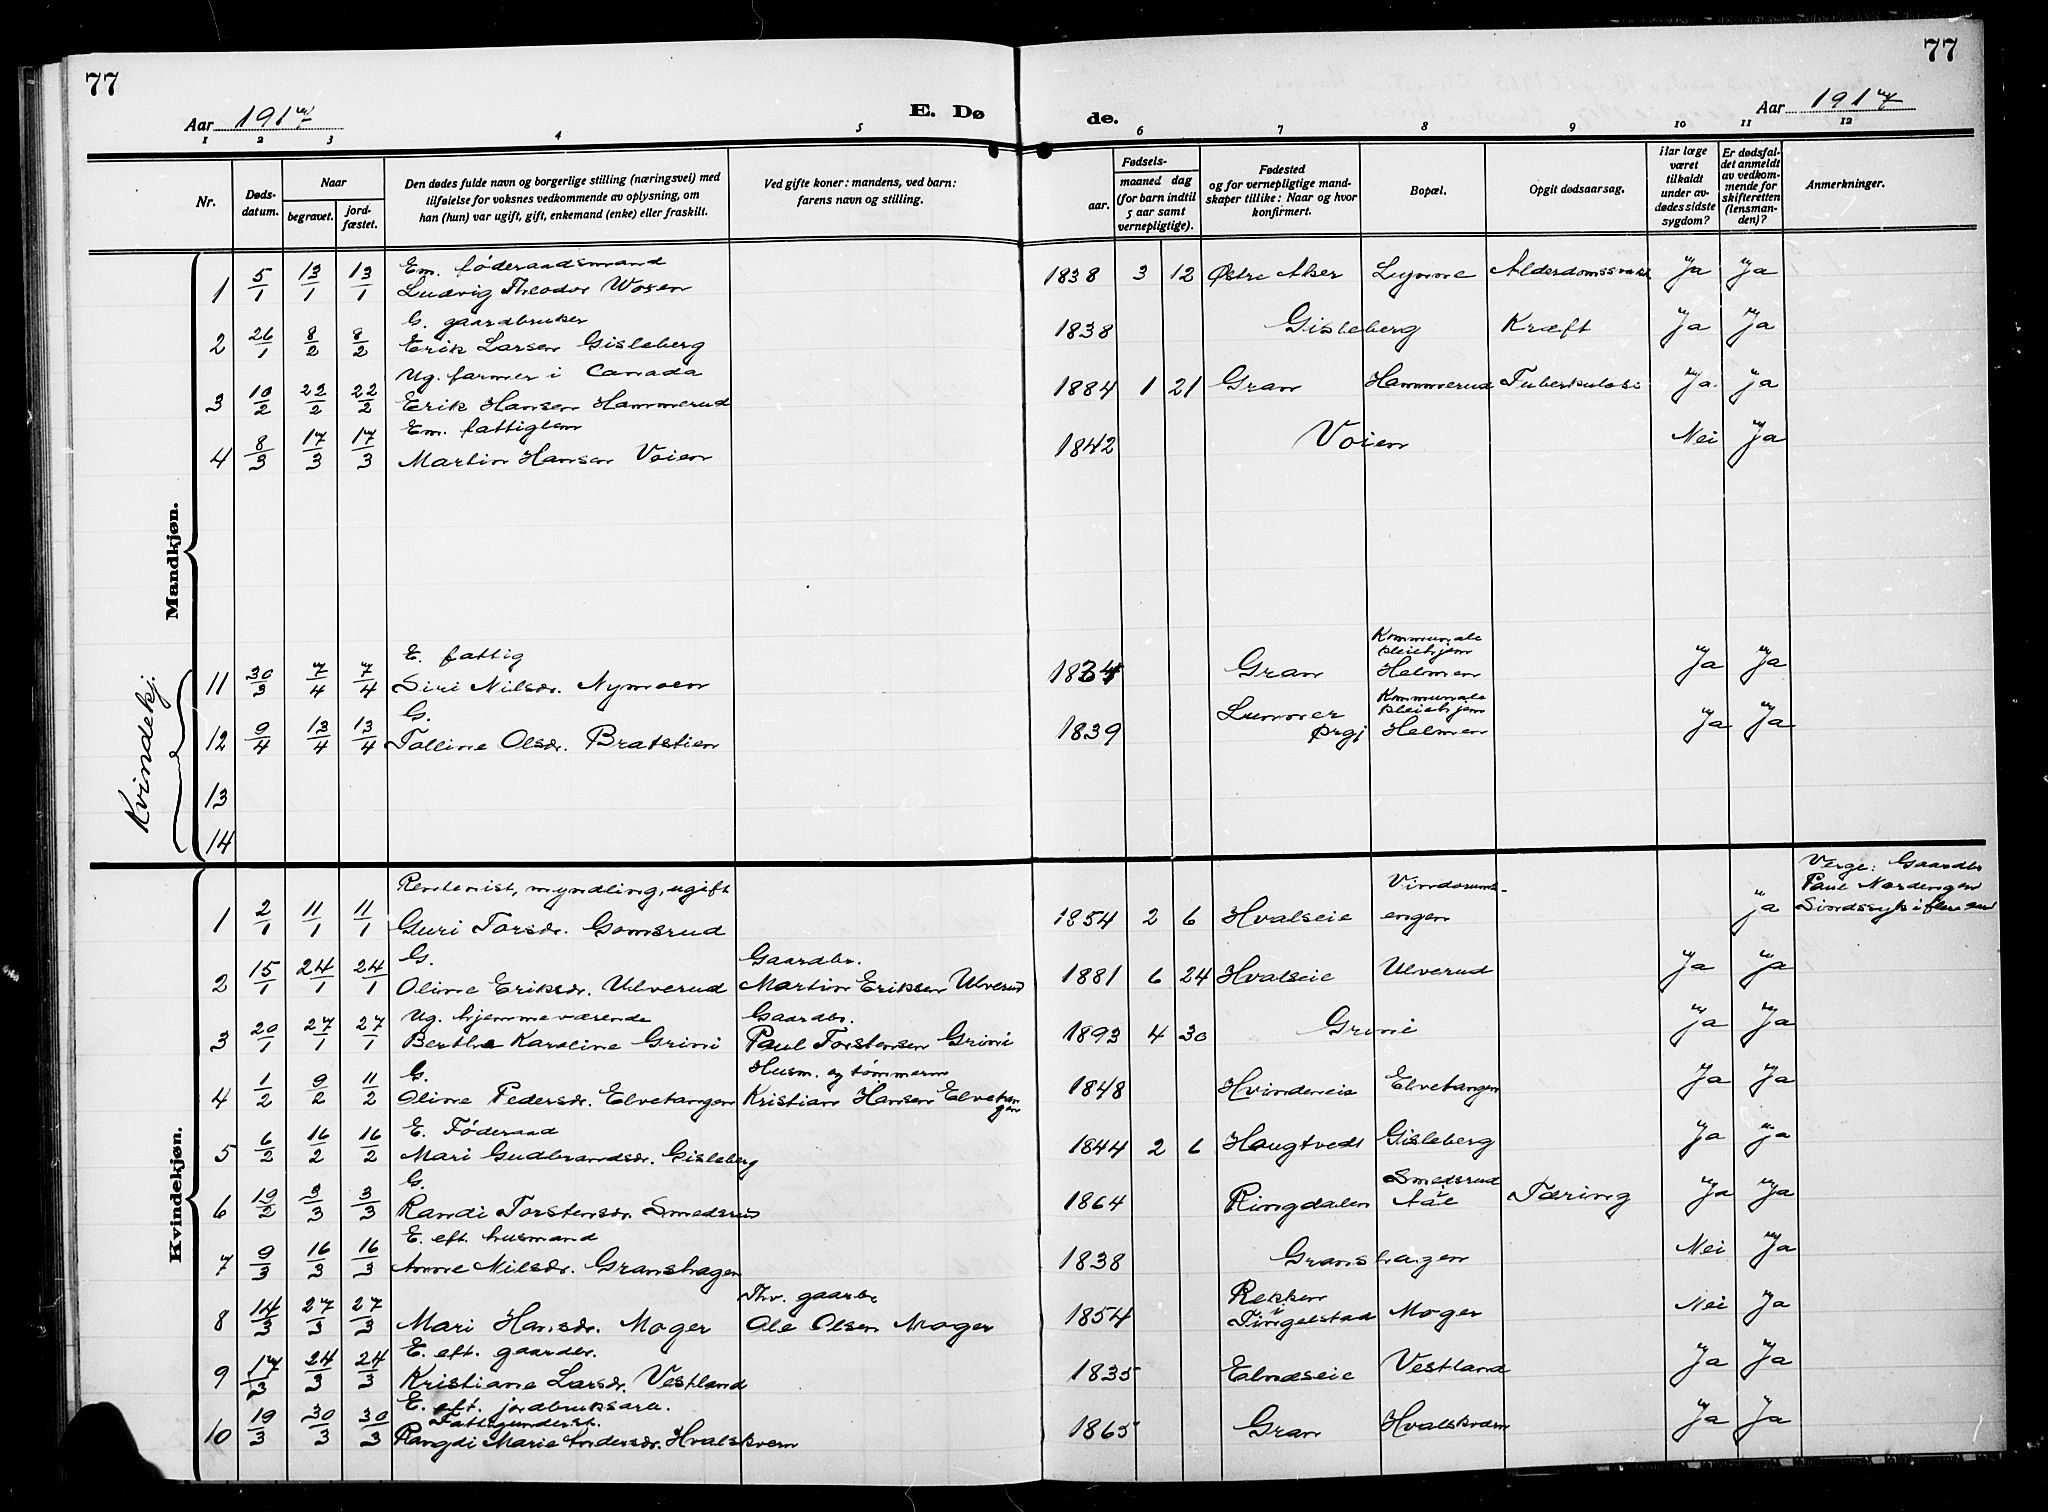 77
77
Aar 1917
E. Dø
de.
Aar 1917
1 2 3 4 5 6 7 8 9 10 11 12
Nr.
Dødsdatum.
Naar
begravet.
jordfæstet.
Den dødes fulde navn og borgerlige stilling (næringsvei) med
tilføielse for voksnes vedkommende av oplysning, om
han (hun) var ugift, gift, enkemand (enke) eller fraskilt.
Ved gifte koner: mandens, ved barn:
farens navn og stilling.
Fødsels-
aar.
maaned dag
(for barn indtil
5 aar samt
vernepligtige).
Fødested
og for vernepligtige mand-
skaper tillike: Naar og hvor
konfirmert.
Bopæl.
Opgit dødsaarsag.
Har læge
været
tilkaldt
under av-
dødes sidste
sygdom?
Er dødsfal-
det anmeldt
av vedkom-
mende for
skifteretten
(lensman-
den)?
Anmerkninger.
Mandkjøn.
Em. føderaadsmand
1 5/1 13/1 13/1 Ludvig Theodor Wosen 1838 3 12 Østre Aker Lynne Ja Ja
G. gaardbruker
2 26/1 8/2 8/2 Erik Larsen Gisleberg 1838 Gisleberg Kræft Ja Ja
Ug. farmer i Canada
3 10/2 22/2 22/2 Erik Hansen Hammerud 1884 1 21 Gran Hammerud Tuberkulose Ja Ja
Em. fattiglem
4 8/3 17/3 17/3 Martin Hansen Voien 1842 Voien Nei Ja
Kvindekj.
E. fattig Kommunale pleiehjem
11 30/3 7/4 7/4 Siri Nilsdr. Nymoen 1834 Gran Helmen Ja Ja
G. Kommunale pleiehjem
12 9/4 13/4 13/4 Talline Olsdr. Bratstien 1839 Lunner Prgj Helmen Ja Ja
13
14
Kvindekjøn.
Rentenist, myndling, ugift
1 2/1 11/1 11/1 Guri Torsdr. Gomsrud 1854 2 6 Hvalseie Vindorumb-engen Ja Verge: Gaardbr Paul Nordengen
G. Gaardbr.
2 15/1 24/1 24/1 Oline Eriksdr. Ulverud Martin Eriksen Ulverud 1881 6 24 Hvalseie Ulverud Ja Ja
Ug. hjemmeværende Gaardbr.
3 20/1 27/1 27/1 Berthe Karoline Grini Paul Torstensen Grini 1893 4 30 Grini Ja Ja
G. Husm. og tømmerm
4 1/2 9/2 11/2 Oline Pedersdr. Elvetangen Kristian Hansen Elvetangen 1848 Hvindeneie Elvetangen Ja Ja
E. Føderaad
5 6/2 16/2 16/2 Mari Gudbrandsdr. Gisleberg 1844 2 6 Haugtvedt Gisleberg Ja Ja
G.
6 19/2 3/3 3/3 Randi Torstensdr. Smedsrud 1864 Ringdalen Smedsrud i Aal Tæring Ja Ja
E. eft. husmand
7 9/3 16/3 16/3 Anne Nilsdr. Granshagen 1838 Granshagen Nei Ja
Fhv. gaarbr
8 14/3 27/3 27/3 Mari Hansdr. Moger Ole Olsen Moger 1854 Rekken i Tingelstad Moger Nei Ja
E. eft. gaardbr.
9 17/3 24/3 24/3 Kristiane Larsdr. Vestland 1835 Elndseie Vestland Ja Ja
E. eft. jordbruksarb.
Fattigunderst.
10 19/3 30/3 30/3 Rangdi Marie Andersdr. Hvalskvern 1865 Gran Hvalskvern Ja Ja